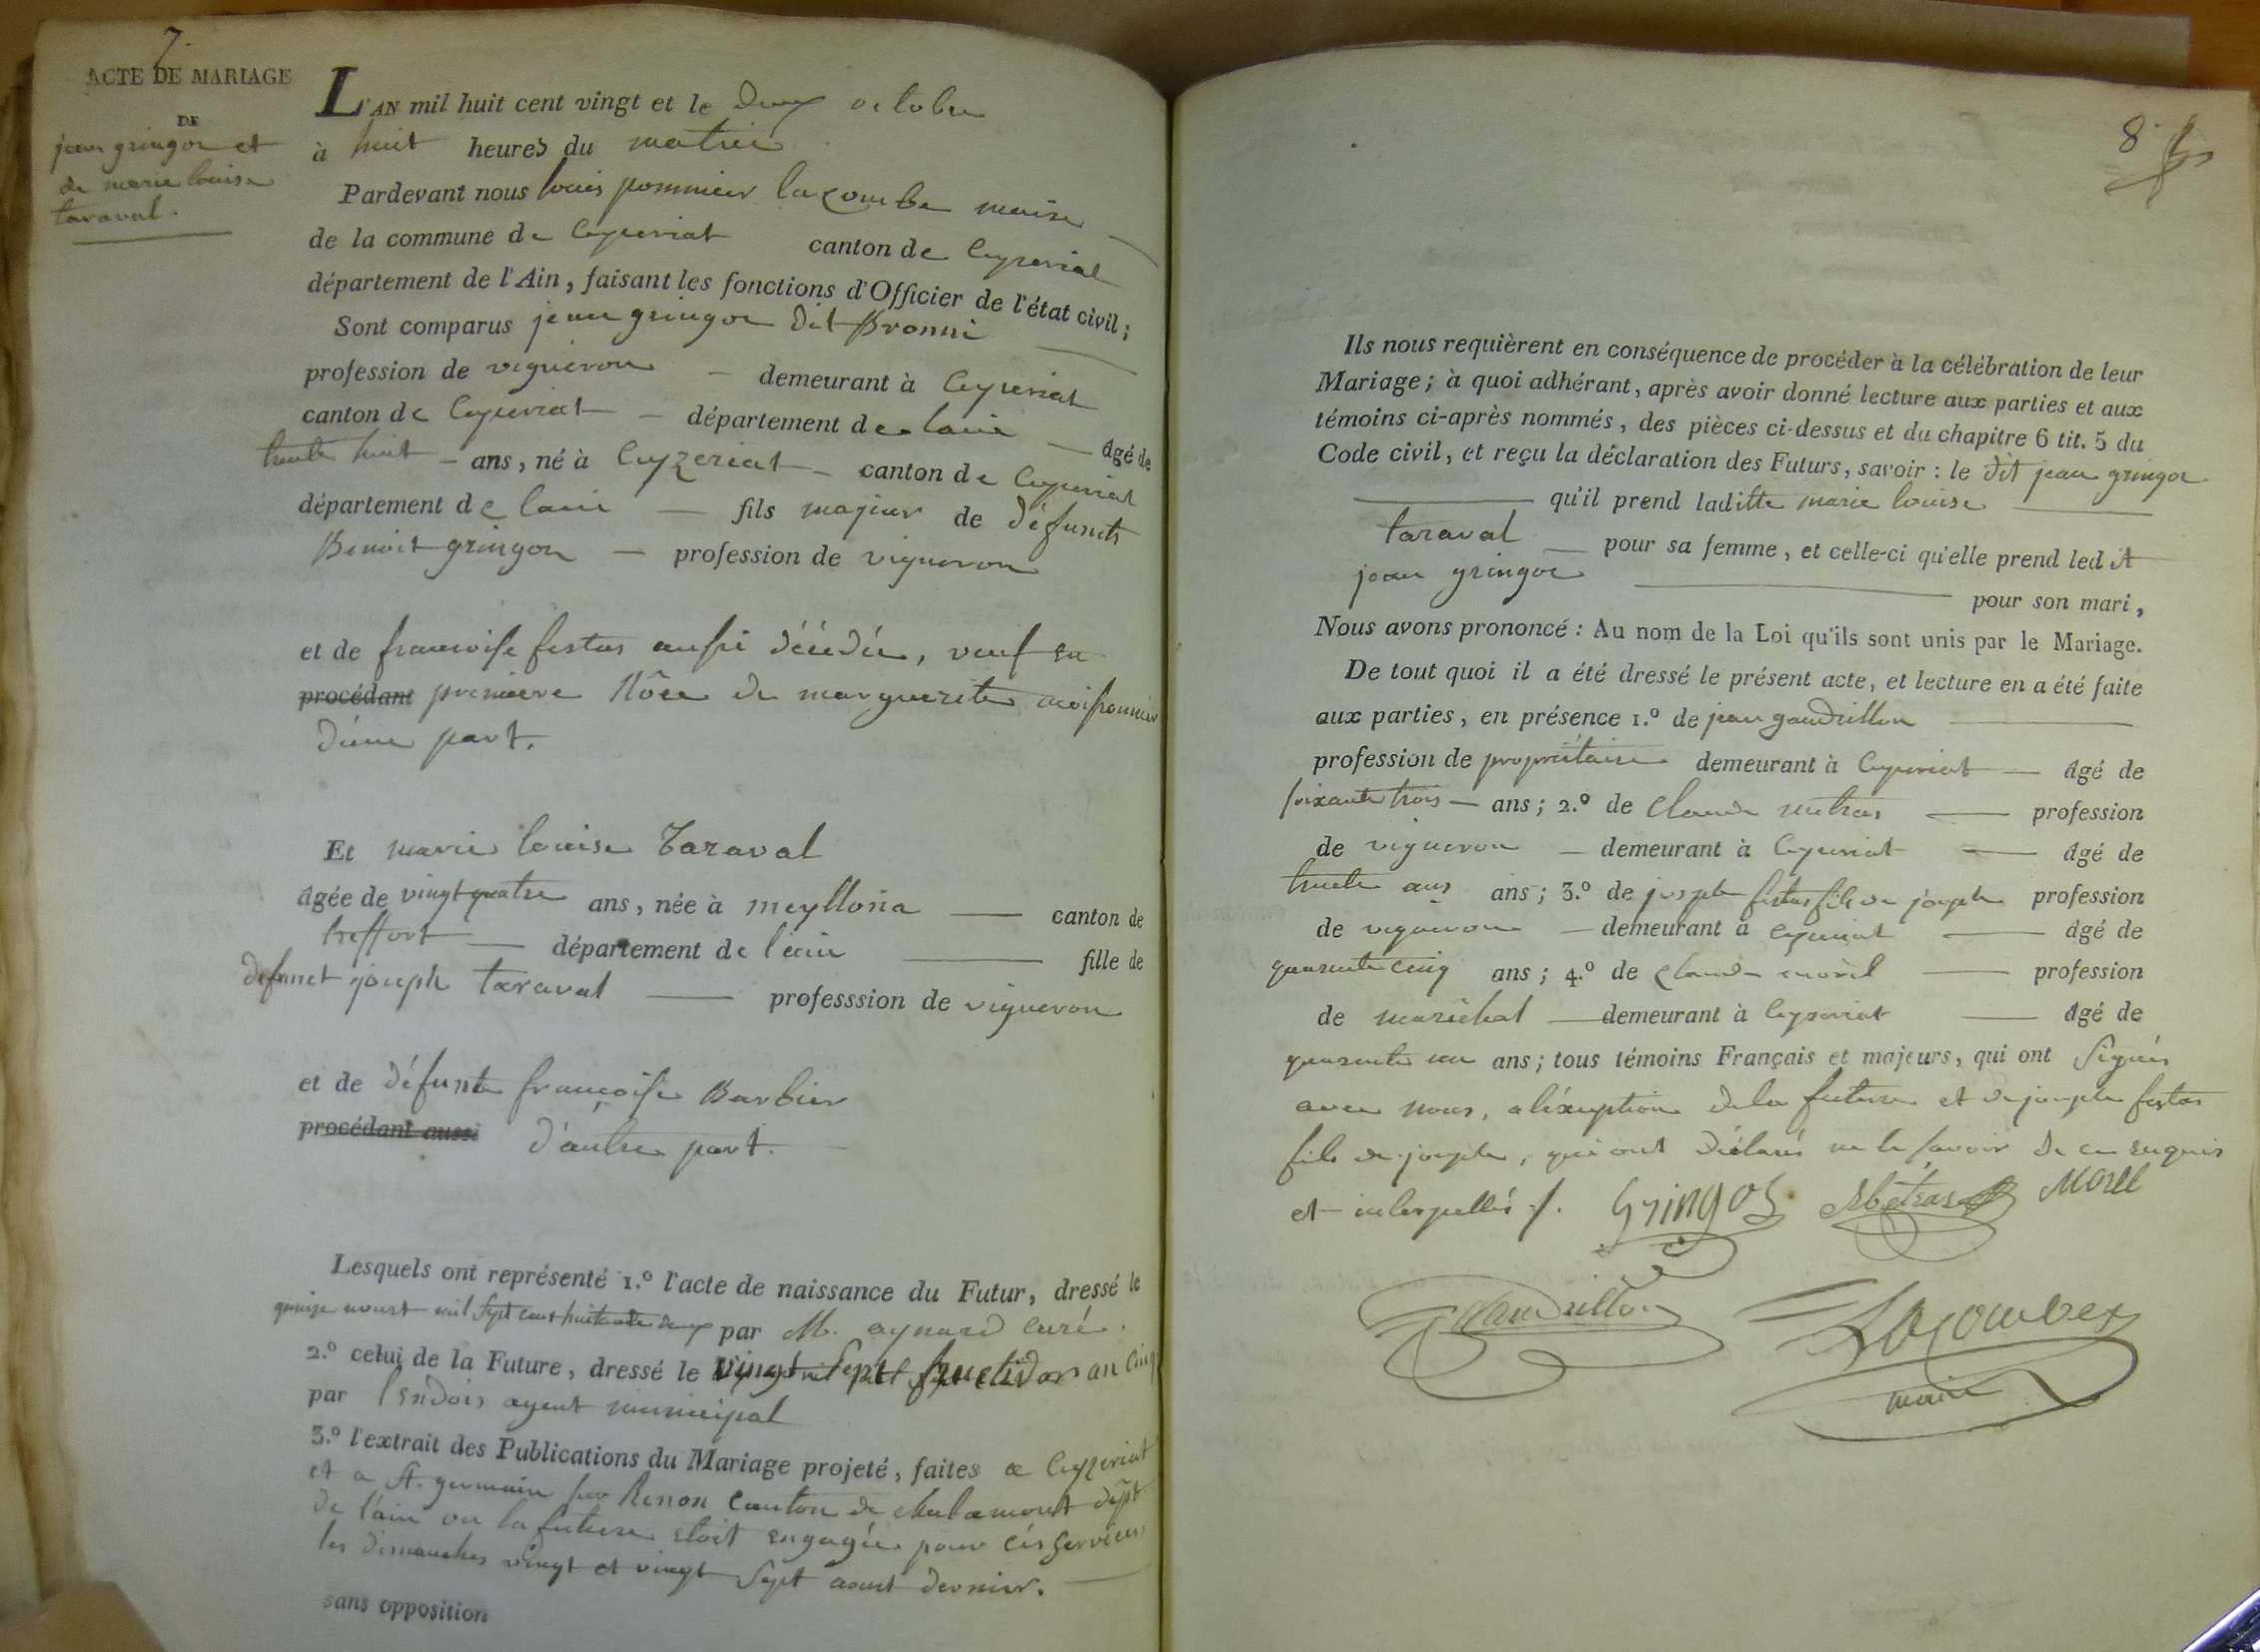 7.
ACTE DE MARIAGE
DE
jean gringoz et
de marie louise
taraval.
L'AN mil huit cent vingt et le deux octobre
à huit heures du matin
Pardevant nous louis pommier lacombe maire
de la commune de Ceyzeriat canton de Ceyzeriat
département de l'Ain, faisant les fonctions d'Officier de l'état civil;
Sont comparus jean gringoz dit
profession de vigneron demeurant à Ceyzeriat
canton de Ceyzeriat département de lain âgé de
trente huit ans, né à Ceyzeriat canton de Ceyzeriat
département de lain fils majeur de défunts
Benoit gringoz profession de vigneron
et de francoise festas aussi décédée, veuf en
procédant premiere Nôce de marguerite
d'une part.
Et marie louise Taraval
âgée de vingt quatre ans, née à meyllona canton de
treffort département de l'ain fille de
defunct joseph taraval professsion de vigneron
et de défunte françoise Barbier
procédant aussi d'autre part.
Lesquels ont représenté 1.º l'acte de naissance du Futur, dressé le
quinze aoust mil sept cent huitante deux par M. aynard curé.
2.º celui de la Future, dressé le vingt sept fructidor an cinq
par agent municipal
3.º l'extrait des Publications du Mariage projeté, faites a Ceyzeriat
et a St. germain sur Renon canton de chalamont dépt.
de l'ain ou la future etoit engagée pour cés services
les dimanches vingt et vingt sept aoust dernier.
sans opposition
8.
Ils nous requièrent en conséquence de procéder à la célébration de leur
Mariage; à quoi adhérant, après avoir donné lecture aux parties et aux
témoins ci-après nommés, des pièces ci-dessus et du chapitre 6 tit. 5 du
Code civil, et reçu la déclaration des Futurs, savoir: le dit jean gringoz
qu'il prend laditte marie louise
taraval pour sa femme, et celle-ci qu'elle prend led it
jean gringoz pour son mari,
Nous avons prononcé: Au nom de la Loi qu'ils sont unis par le Mariage.
De tout quoi il a été dressé le présent acte, et lecture en a été faite
aux parties, en présence 1.º de jean gaudrillon
profession de propriétaire demeurant à Ceyzeriat âgé de
soixante trois ans; 2.º de claude métras profession
de vigneron demeurant à Ceyzeriat âgé de
trente ans ans; 3.º de joseph festas fils de joseph profession
de vigneron demeurant à Ceyzeriat âgé de
quarante cinq ans; 4.º de claude morel profession
de maréchal demeurant à Ceyzeriat âgé de
quarante un ans; tous témoins Français et majeurs, qui ont signés
avec nous, a léxception de la future et de joseph festas
fils de joseph, qui ont déclarés ne le savoir de ce enquis
et interpellés ./. Gringoz Métras Morel
Gaudrillon Lacombe
maire